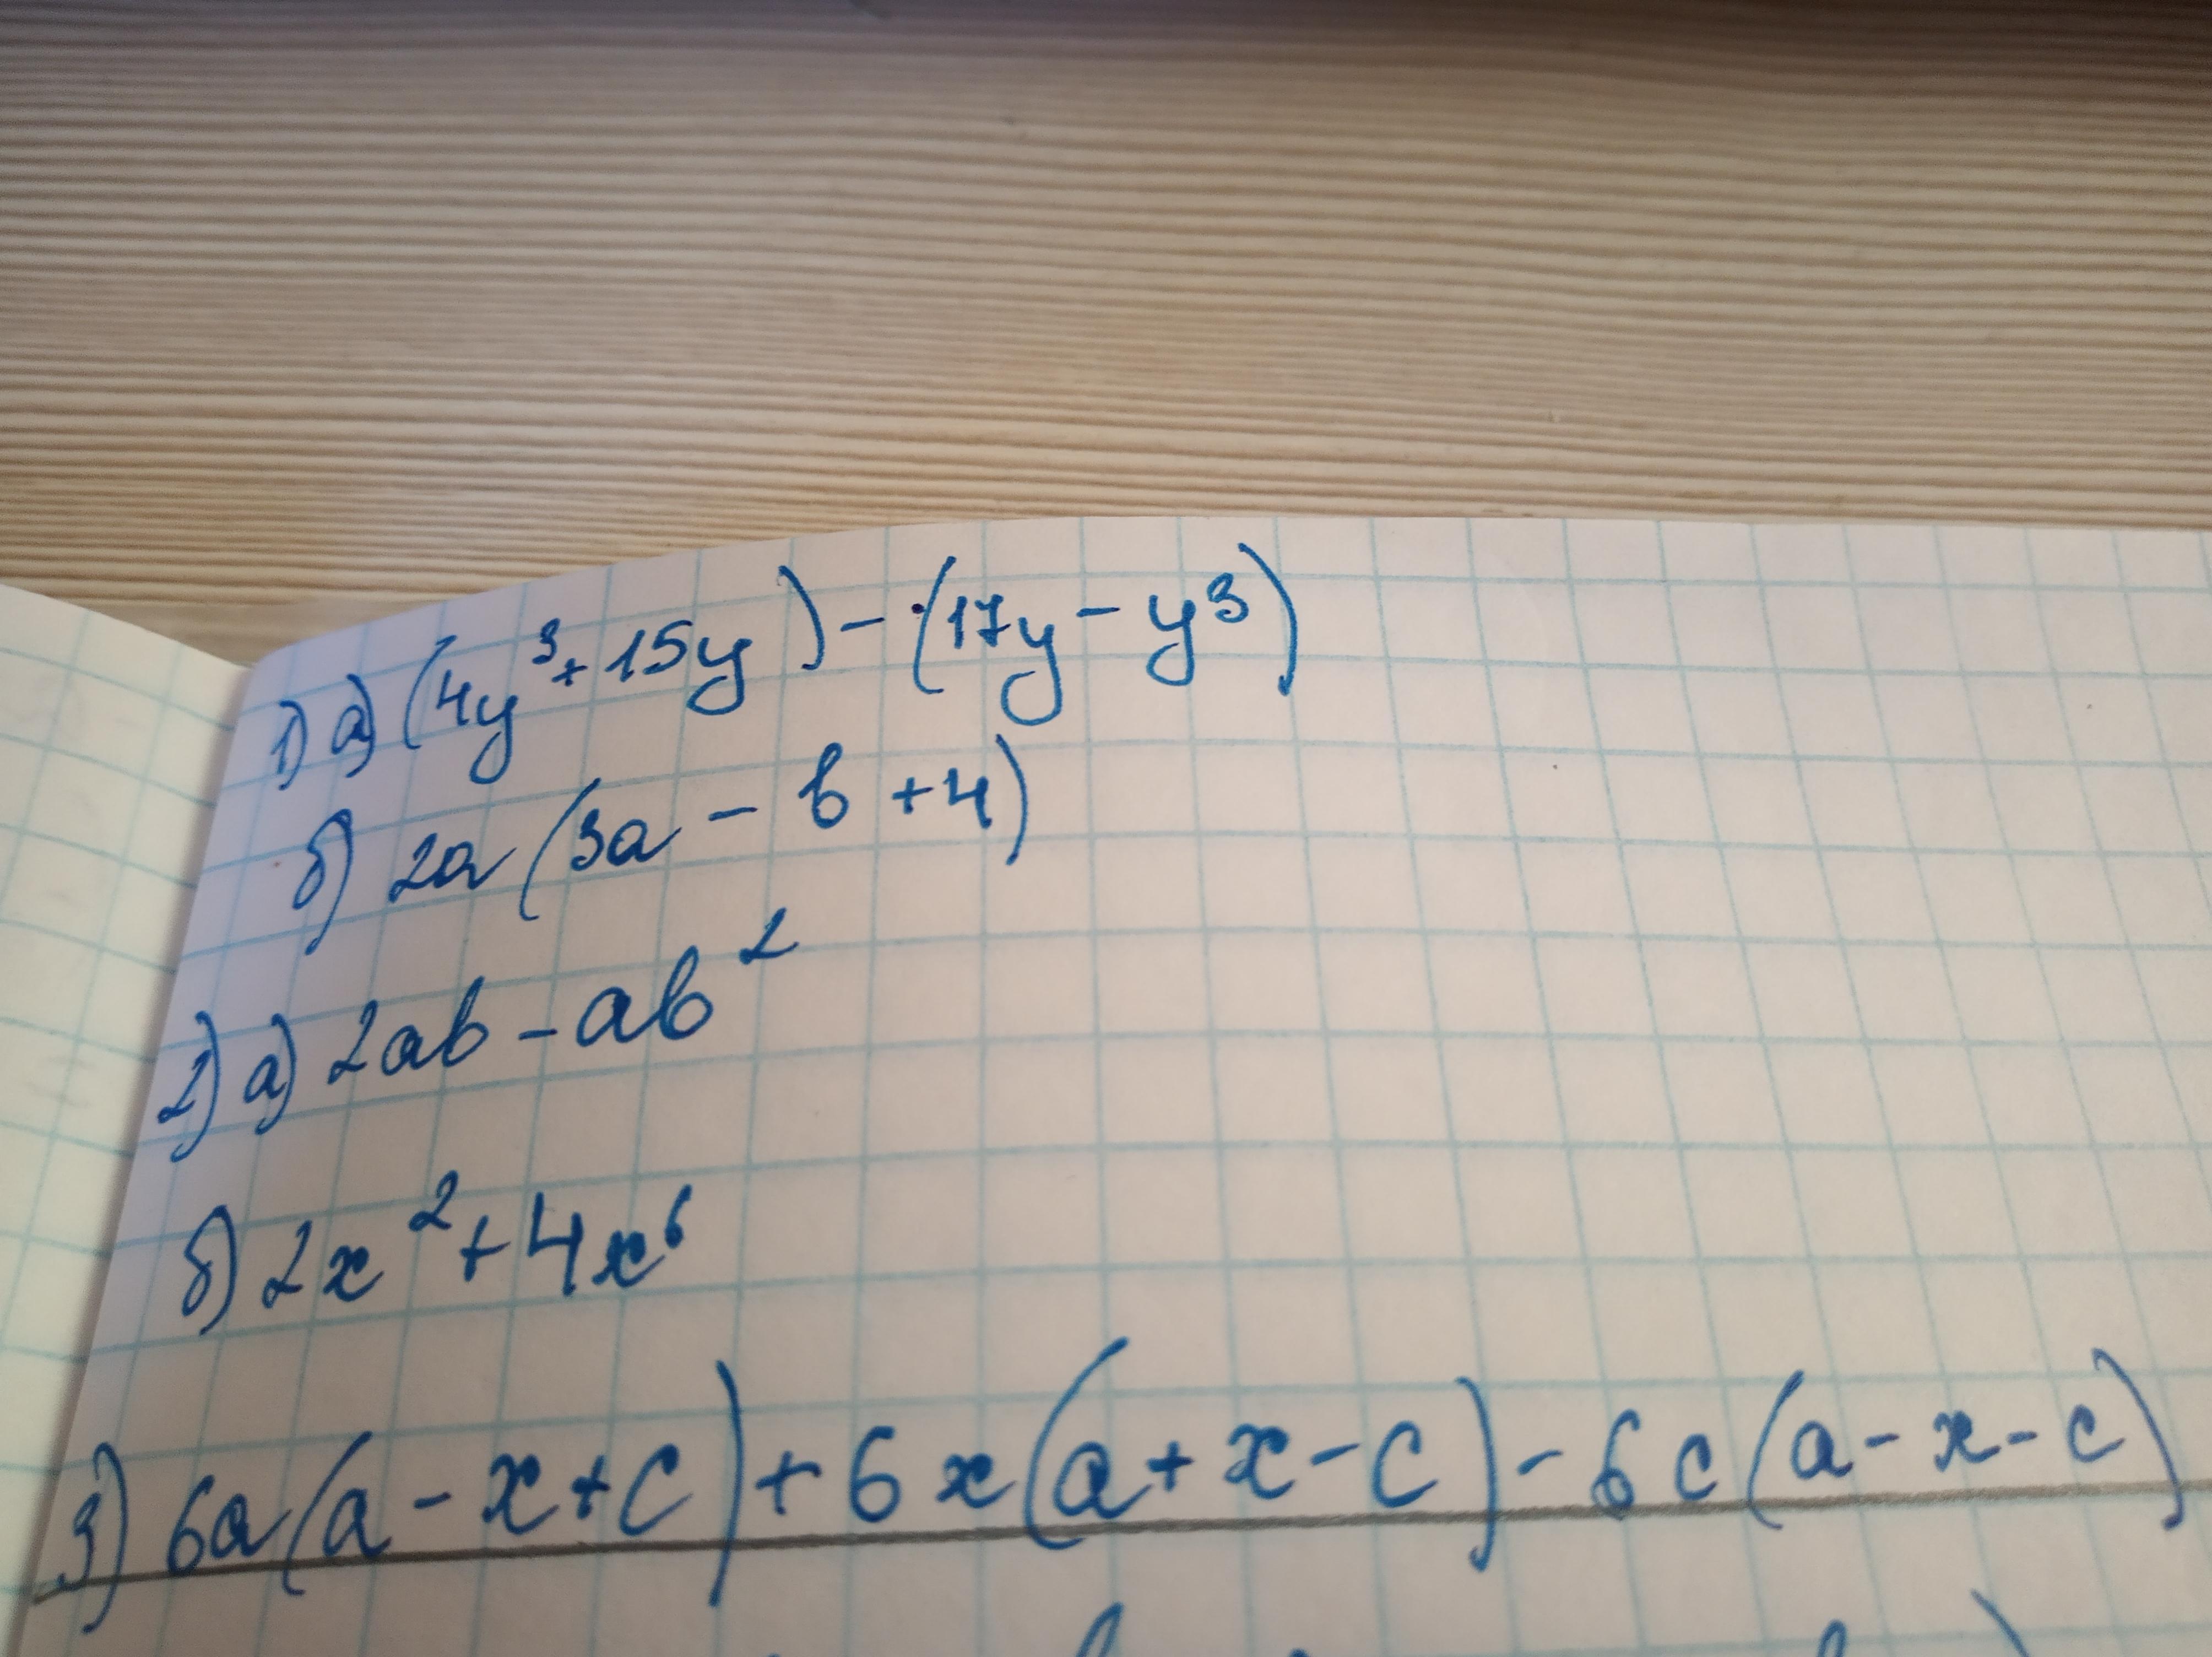 1) а) (4y³ + 15y) - (17y - y³)
б) 2a (3a - b + 4)
2) а) 2ab - ab²
б) 2x² + 4x⁶
3) 6a (a - x + c) + 6x (a + x - c) - 6c (a - x - c)